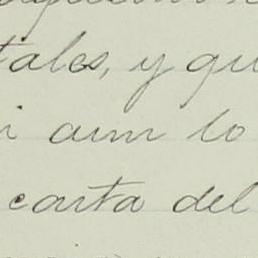 tales, y qu
i aun lo
carta del